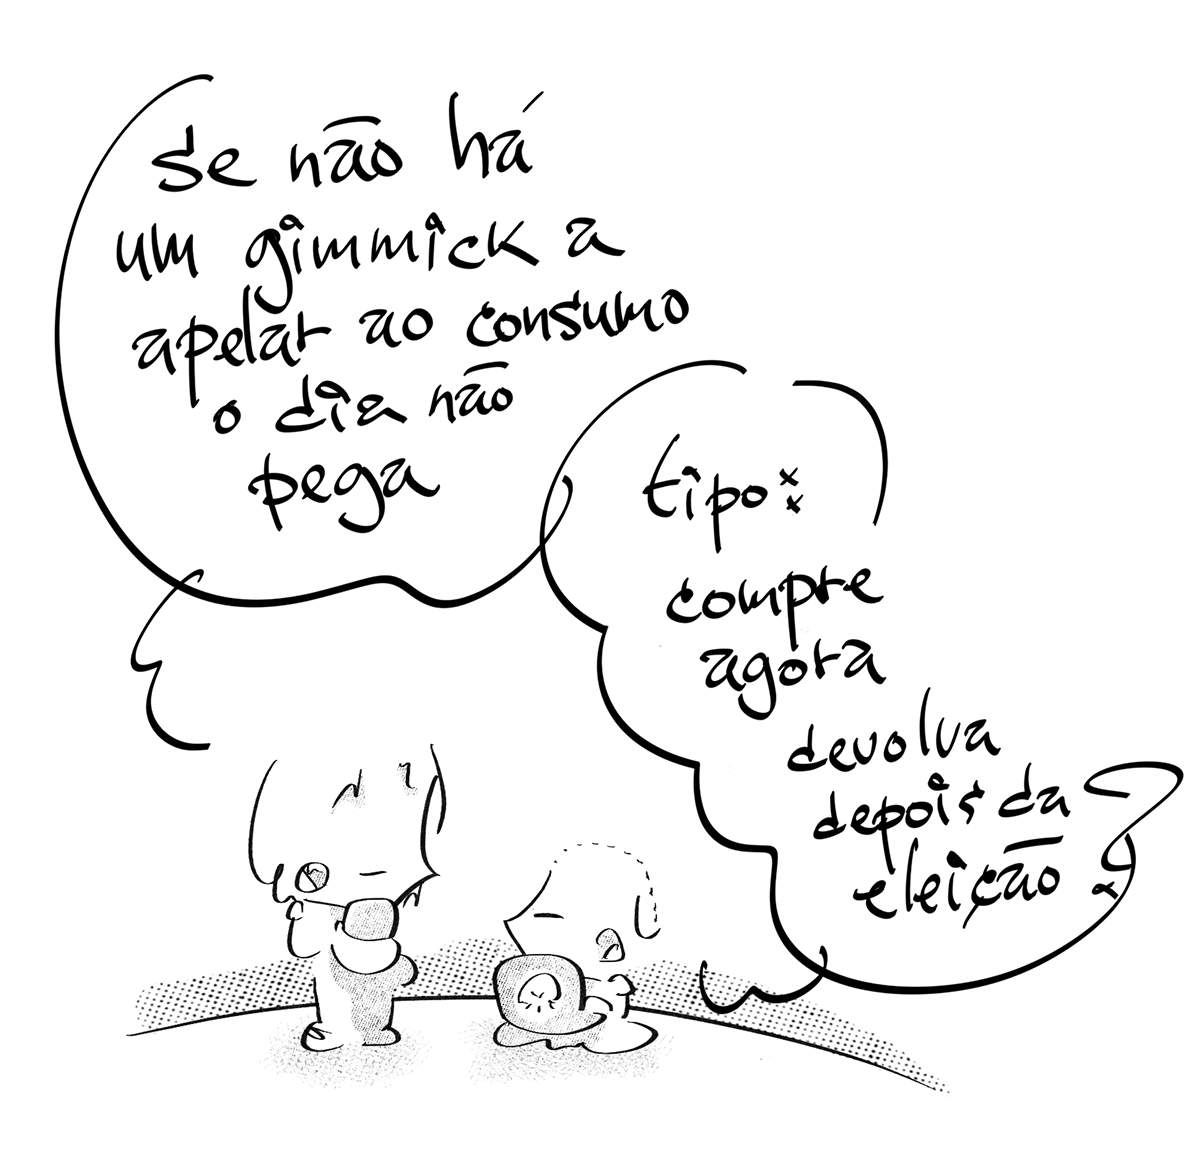 se não há
um gimmick a
apelar ao consumo
o dia não
pega
tipo:
compre
agora
devolva
depois da
eleição?